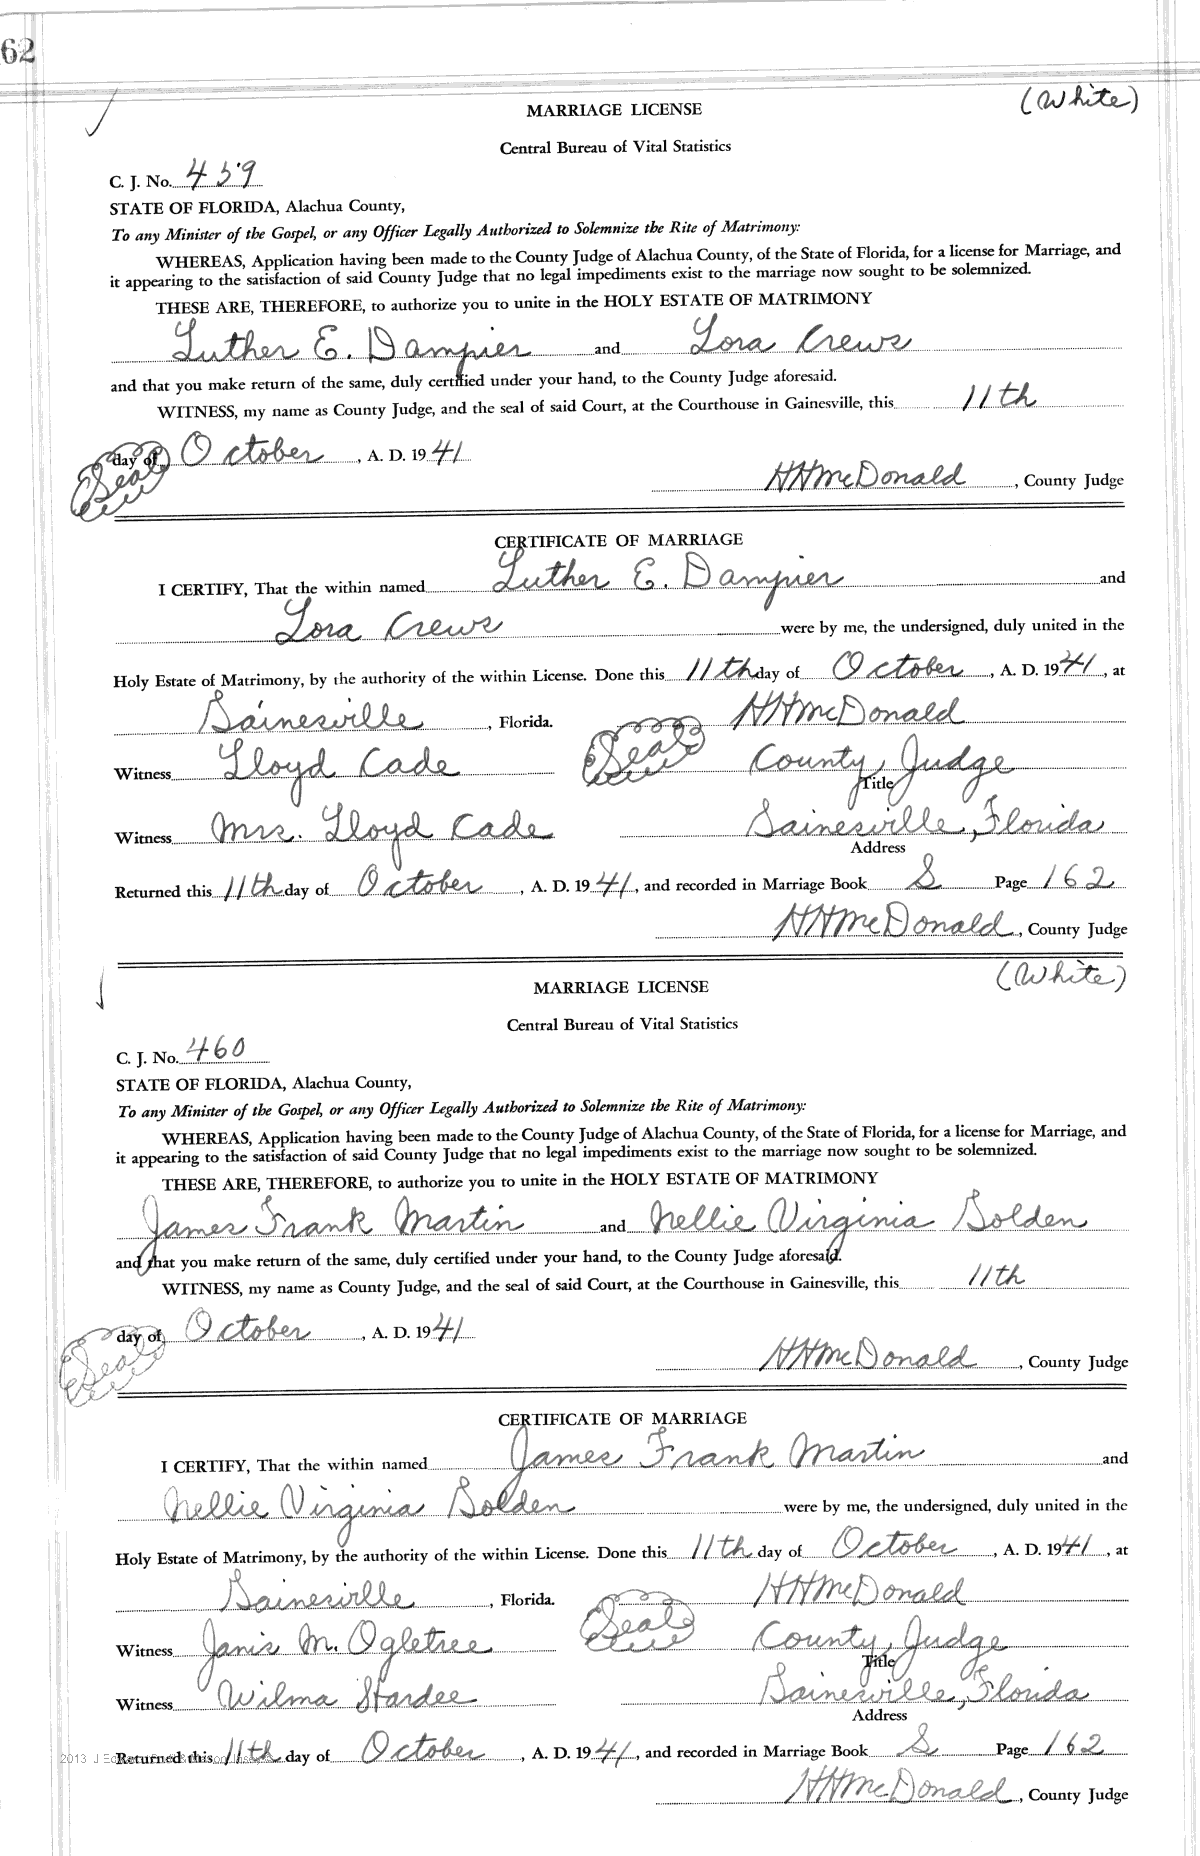 62
(White)
MARRIAGE LICENSE
Central Bureau of Vital Statistics
C. J. No. 459
STATE OF FLORIDA, Alachua County,
To any Minister of the Gospel, or any Officer Legally Authorized to Solemnize the Rite of Matrimony:
WHEREAS, Application having been made to the County Judge of Alachua County, of the State of Florida, for a license for Marriage, and
it appearing to the satisfaction of said County Judge that no legal impediments exist to the marriage now sought to be solemnized.
THESE ARE, THEREFORE, to authorize you to unite in the HOLY ESTATE OF MATRIMONY
Luther E. Dampier and Lora Crews
and that you make return of the same, duly certified under your hand, to the County Judge aforesaid.
WITNESS, my name as County Judge, and the seal of said Court, at the Courthouse in Gainesville, this 11th
day of October, A. D. 1941
Seal
HHMcDonald, County Judge
CERTIFICATE OF MARRIAGE
I CERTIFY, That the within named Luther E. Dampier and
Lora Crews were by me, the undersigned, duly united in the
Holy Estate of Matrimony, by the authority of the within License. Done this 11th day of October, A. D. 1941, at
Gainesville, Florida. HHMcDonald
Seal
Witness Lloyd Cade County Judge
Title
Witness Mrs. Lloyd Cade Gainesville, Florida
Address
Returned this 11th day of October, A. D. 1941, and recorded in Marriage Book S Page 162
HHMcDonald, County Judge
(White)
MARRIAGE LICENSE
Central Bureau of Vital Statistics
C. J. No. 460
STATE OF FLORIDA, Alachua County,
To any Minister of the Gospel, or any Officer Legally Authorized to Solemnize the Rite of Matrimony:
WHEREAS, Application having been made to the County Judge of Alachua County, of the State of Florida, for a license for Marriage, and
it appearing to the satisfaction of said County Judge that no legal impediments exist to the marriage now sought to be solemnized.
THESE ARE, THEREFORE, to authorize you to unite in the HOLY ESTATE OF MATRIMONY
James Frank Martin and Nellie Virginia Golden
and that you make return of the same, duly certified under your hand, to the County Judge aforesaid.
WITNESS, my name as County Judge, and the seal of said Court, at the Courthouse in Gainesville, this 11th
day of October, A. D. 1941
Seal
HHMcDonald, County Judge
CERTIFICATE OF MARRIAGE
I CERTIFY, That the within named James Frank Martin and
Nellie Virginia Golden were by me, the undersigned, duly united in the
Holy Estate of Matrimony, by the authority of the within License. Done this 11th day of October, A. D. 1941, at
Gainesville, Florida. HHMcDonald
Seal
Witness Janis M. Ogletree County Judge
Title
Witness Wilma Hardee Gainesville, Florida
Address
2013 J
Returned this 11th day of October, A. D. 1941, and recorded in Marriage Book S Page 162
HHMcDonald, County Judge